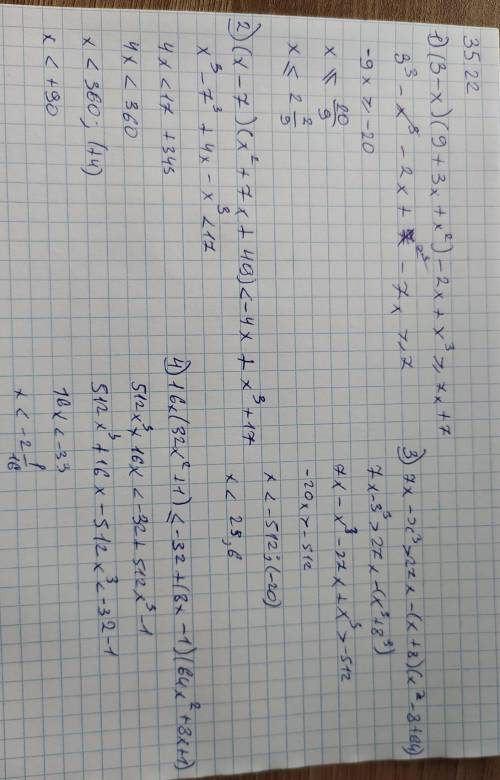 3522
1) (3-x)(9+3x+x²)-2x+x³ ≥ 7x+7
3³-x³-2x+x³-7x ≥ 7
-9x ≥ -20
x ≤ 20/9
x ≤ 2 2/9
2) (x-7)(x²+7x+49) < -4x+x³+17
x³-7³+4x-x³ < 17
4x < 17+343
4x < 360
x < 360; (:4)
x < +90
3) 7x-x³ > 27x-(x+8)(x²-8+64)
7x-x³ > 27x-(x³+8³)
7x-x³-27x+x³ > -512
-20x > -512
x < -512; (-20)
x < 25,6
4) 16x(32x²+1) ≤ -32+(8x-1)(64x²+8x+1)
512x³+16x < -32+512x³-1
512x³+16x-512x³ < -32-1
16x < -33
x < -2 1/16